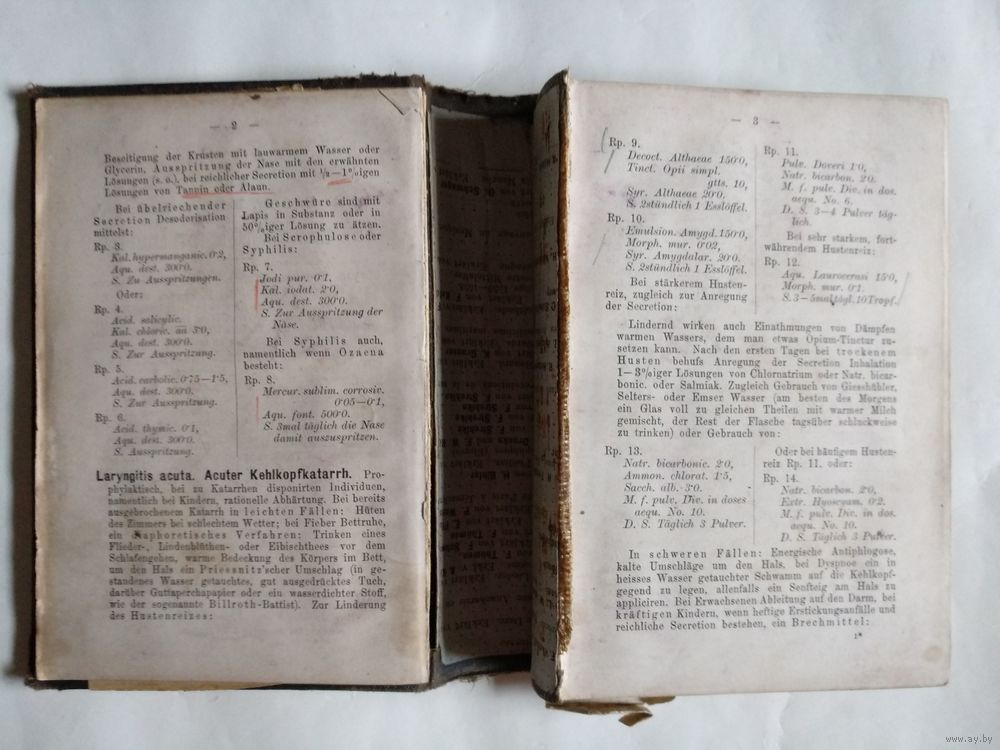 — 2 —
Beseitigung der Krusten mit lauwarmem Wasser oder
Glycerin, Ausspritzung der Nase mit den erwähnten
Lösungen (s. o.), bei reichlicher Secretion mit ½—1%igen
Lösungen von Tannin oder Alaun.
Bei übelriechender
Secretion Desodorisation
mittelst:
Rp. 3.
Kal. hypermanganic. 0·2,
Aqu. dest. 300·0.
S. Zu Ausspritzungen.
Oder:
Rp. 4.
Acid. salicylic.
Kal. chloric. aa 3·0,
Aqu. dest. 300·0.
S. Zur Ausspritzung.
Rp. 5.
Acid. carbolic. 0·75—1·5,
Aqu. dest. 300·0.
S. Zur Ausspritzung.
Rp. 6.
Acid. thymic. 0·1,
Aqu. dest. 300·0.
S. Ausspritzung.
Geschwüre sind mit
Lapis in Substanz oder in
50%iger Lösung zu ätzen.
Bei Scrophulose oder
Syphilis:
Rp. 7.
Jodi pur. 0·1,
Kal. iodat. 2·0,
Aqu. dest. 300·0.
S. Zur Ausspritzung der
Nase.
Bei Syphilis auch,
namentlich wenn Ozaena
besteht:
Rp. 8.
Mercur. sublim. corrosiv.
0·05—0·1,
Aqu. font. 500·0.
S. 3mal täglich die Nase
damit auszuspritzen.
Laryngitis acuta. Acuter Kehlkopfkatarrh. Pro-
phylaktisch, bei zu Katarrhen disponirten Individuen,
namentlich bei Kindern, rationelle Abhärtung. Bei bereits
ausgebrochenem Katarrh in leichten Fällen: Hüten
des Zimmers bei schlechtem Wetter; bei Fieber Bettruhe,
ein diaphoretisches Verfahren: Trinken eines
Flieder-, Lindenblüthen- oder Eibischthees vor dem
Schlafengehen, warme Bedeckung des Körpers im Bett,
um den Hals ein Priessnitz'scher Umschlag (in ge-
standenes Wasser getauchtes, gut ausgedrücktes Tuch,
darüber Guttaperchapapier oder ein wasserdichter Stoff,
wie der sogenannte Billroth-Battist). Zur Linderung
des Hustenreizes:
— 3 —
Rp. 9.
Decoct. Althaeae 150·0,
Tinct. Opii simpl.
gtts. 10,
Syr. Althaeae 20·0.
S. 2stündlich 1 Esslöffel.
Rp. 10.
Emulsion. Amygd. 150·0,
Morph. mur. 0·02,
Syr. Amygdalar. 20·0.
S. 2stündlich 1 Esslöffel.
Bei stärkerem Husten-
reiz, zugleich zur Anregung
der Secretion:
Rp. 11.
Pulv. Doveri 1·0,
Natr. bicarbon. 2·0.
M. f. pulv. Div. in dos.
aequ. No. 6.
D. S. 3—4 Pulver täg-
lich.
Bei sehr starkem, fort-
währendem Hustenreiz:
Rp. 12.
Aqu. Laurocerasi 15·0,
Morph. mur. 0·1.
S. 3—5mal tägl. 10 Tropf.
Lindernd wirken auch Einathmungen von Dämpfen
warmen Wassers, dem man etwas Opium-Tinctur zu-
setzen kann. Nach den ersten Tagen bei trockenem
Husten behufs Anregung der Secretion Inhalation
1—3%iger Lösungen von Chlornatrium oder Natr. bicar-
bonic. oder Salmiak. Zugleich Gebrauch von Giesshübler,
Selters- oder Emser Wasser (am besten des Morgens
ein Glas voll zu gleichen Theilen mit warmer Milch
gemischt, der Rest der Flasche tagsüber schluckweise
zu trinken) oder Gebrauch von:
Rp. 13.
Natr. bicarbonic. 2·0,
Ammon. chlorat. 1·5,
Sacch. alb. 3·0.
M. f. pulv. Div. in doses
aequ. No. 10.
D. S. Täglich 3 Pulver.
Oder bei häufigem Husten-
reiz Rp. 11. oder:
Rp. 14.
Natr. bicarbon. 2·0,
Extr. Hyoscyam. 0·2.
M. f. pulv. Div. in dos.
aequ. No. 10.
D. S. Täglich 3 Pulver.
In schweren Fällen: Energische Antiphlogose,
kalte Umschläge um den Hals, bei Dyspnoe ein in
heisses Wasser getauchter Schwamm auf die Kehlkopf-
gegend zu legen, allenfalls ein Senfteig am Hals zu
appliciren. Bei Erwachsenen Ableitung auf den Darm, bei
kräftigen Kindern, wenn heftige Erstickungsanfälle und
reichliche Secretion bestehen, ein Brechmittel:
1*
www.ay.by